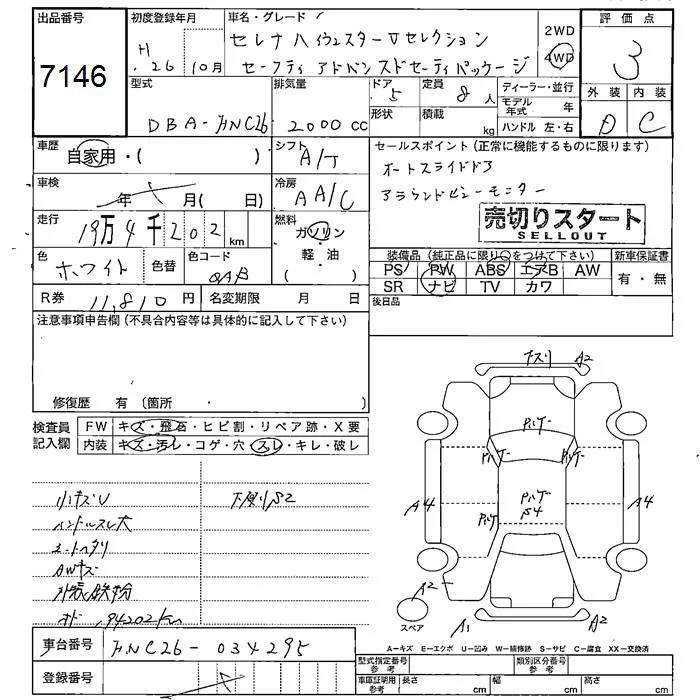 出品番号
7146
初度登録年月
H.26 10月
車名・グレード
セレナ ハイウェスター Vセレクション
セーフティ アドバンスドセーフティパッケージ
2WD
4WD
評価点
3
外装 内装
D C
型式
DBA-HNC26
排気量
2000 cc
ドア
5
形状
定員
8人
積載
kg
ディーラー・並行
モデル年式 年
ハンドル 左・右
車歴
自家用・( )
シフト
A/T
セールスポイント(正常に機能するものに限ります)
オートスライドドア
アラウンドビューモニター
売切りスタート
SELLOUT
車検
年 月( 日)
冷房
AA/C
走行
19万4千202km
燃料
ガソリン
・軽・油
( )
色
ホワイト
色替
色コード
QAB
装備品(純正品に限り○をつけて下さい)
PS PW ABS エアB AW
SR ナビ TV カワ
新車保証書
有・無
R券 11,810円
名変期限 月 日
後日品
注意事項申告欄(不具合内容等は具体的に記入して下さい)
修復歴 有 〔箇所 ・ 〕
検査員
記入欄
FW キズ・飛石・ヒビ割・リペア跡・X要
内装 キズ・汚レ・コゲ・穴・スレ・キレ・破レ
小キズU
ハンドルスレ大
シートヘタリ
AWキズ
外装鉄粉
オド 194202km
下廻りS2
スリ A2
A4
A4
S4
A2
A1
A2
スペア
A-キズ E-エクボ U-凹み W-補修跡 S-サビ C-腐食 XX-交換済
車台番号
HNC26-034295
登録番号
型式指定番号
参考
類別区分番号
参考
車庫証明用
参考
長さ cm 幅 cm 高さ cm